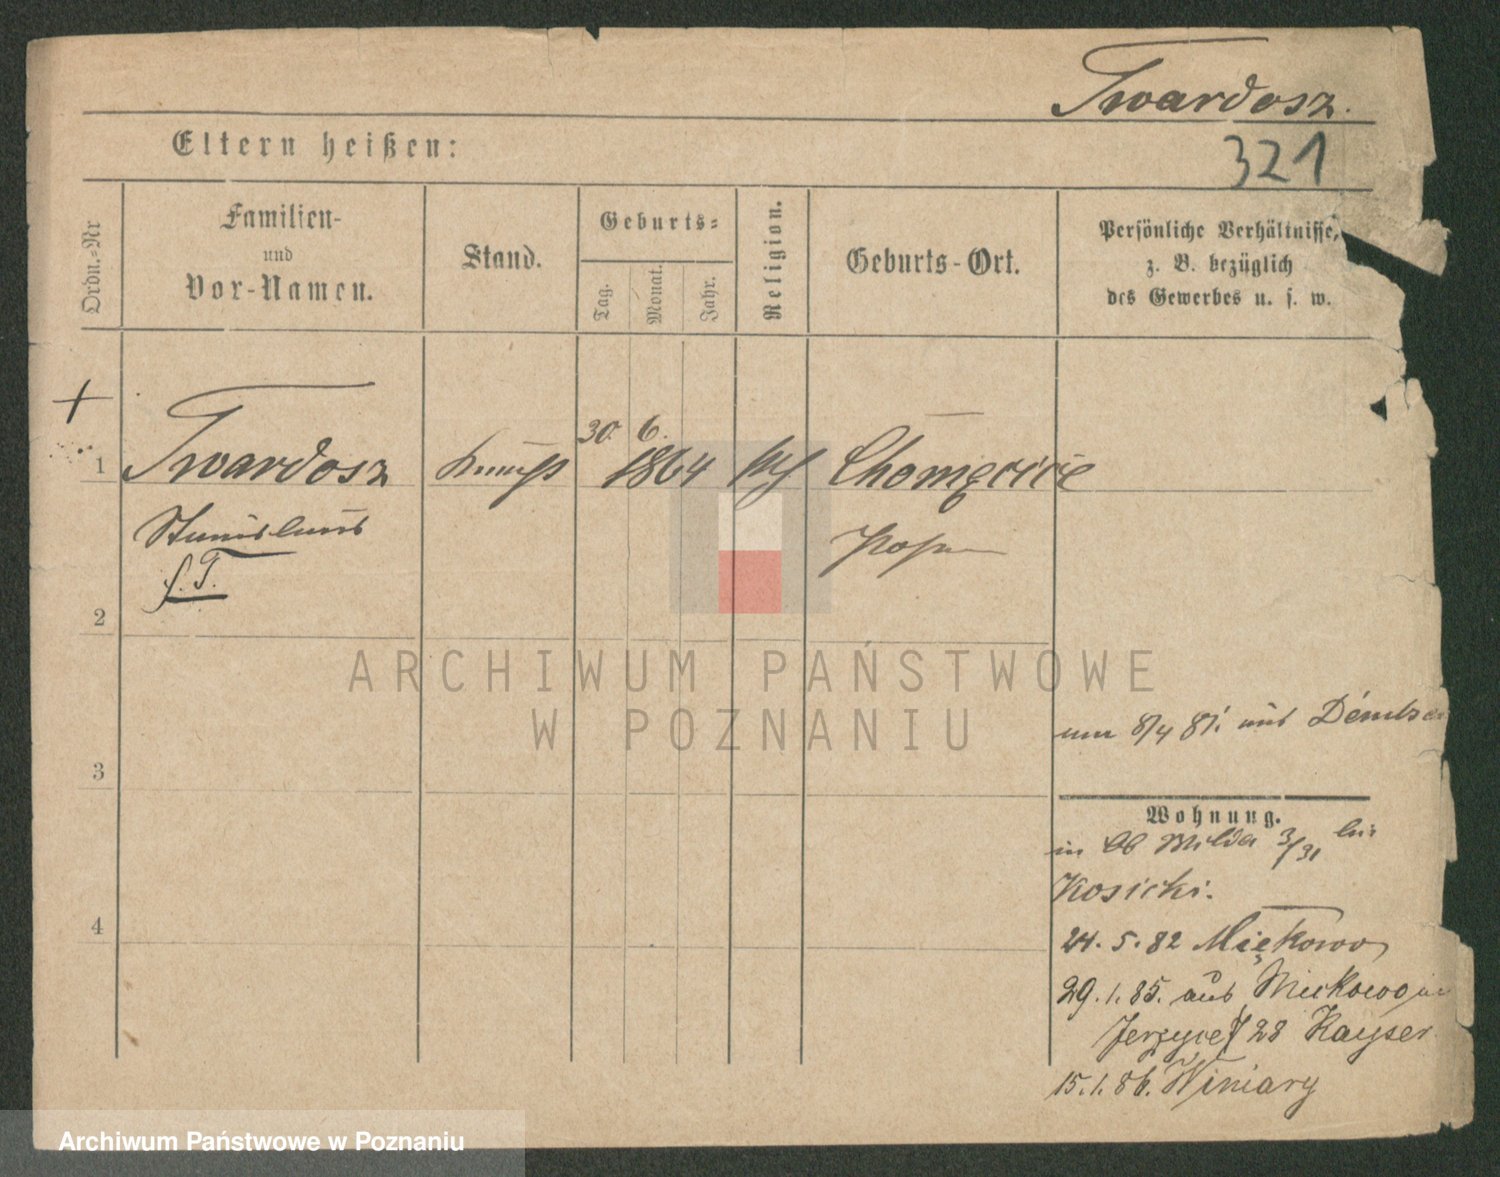 Twardosz.
321
Eltern heißen:
Ordn.-Nr
Familien-
und
Vor-Namen.
Stand.
Geburts-
Tag.
Monat.
Jahr.
Religion.
Geburts-Ort.
Persönliche Verhältnisse,
z. B. bezüglich
des Gewerbes u. s. w.
1
Twardosz
Knecht
30. 6.
1864
kth
Chomęcice
Stanislaus
f. T.
Posen
2
ARCHIWUM PAŃSTWOWE
W POZNANIU
3
8/4 81. aus
Wohnung.
in Ob Wilda 3/31 bei
Kosicki.
4
24. 5. 82 Miękowo
29. 1. 85. aus Miekowo in
Jerzyce 28 Kayser
15. 1. 86. Winiary
Archiwum Państwowe w Poznaniu